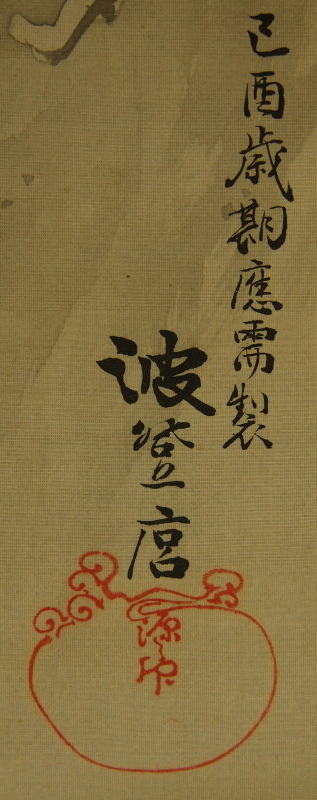 己酉歳期應需製
波登宮
源印